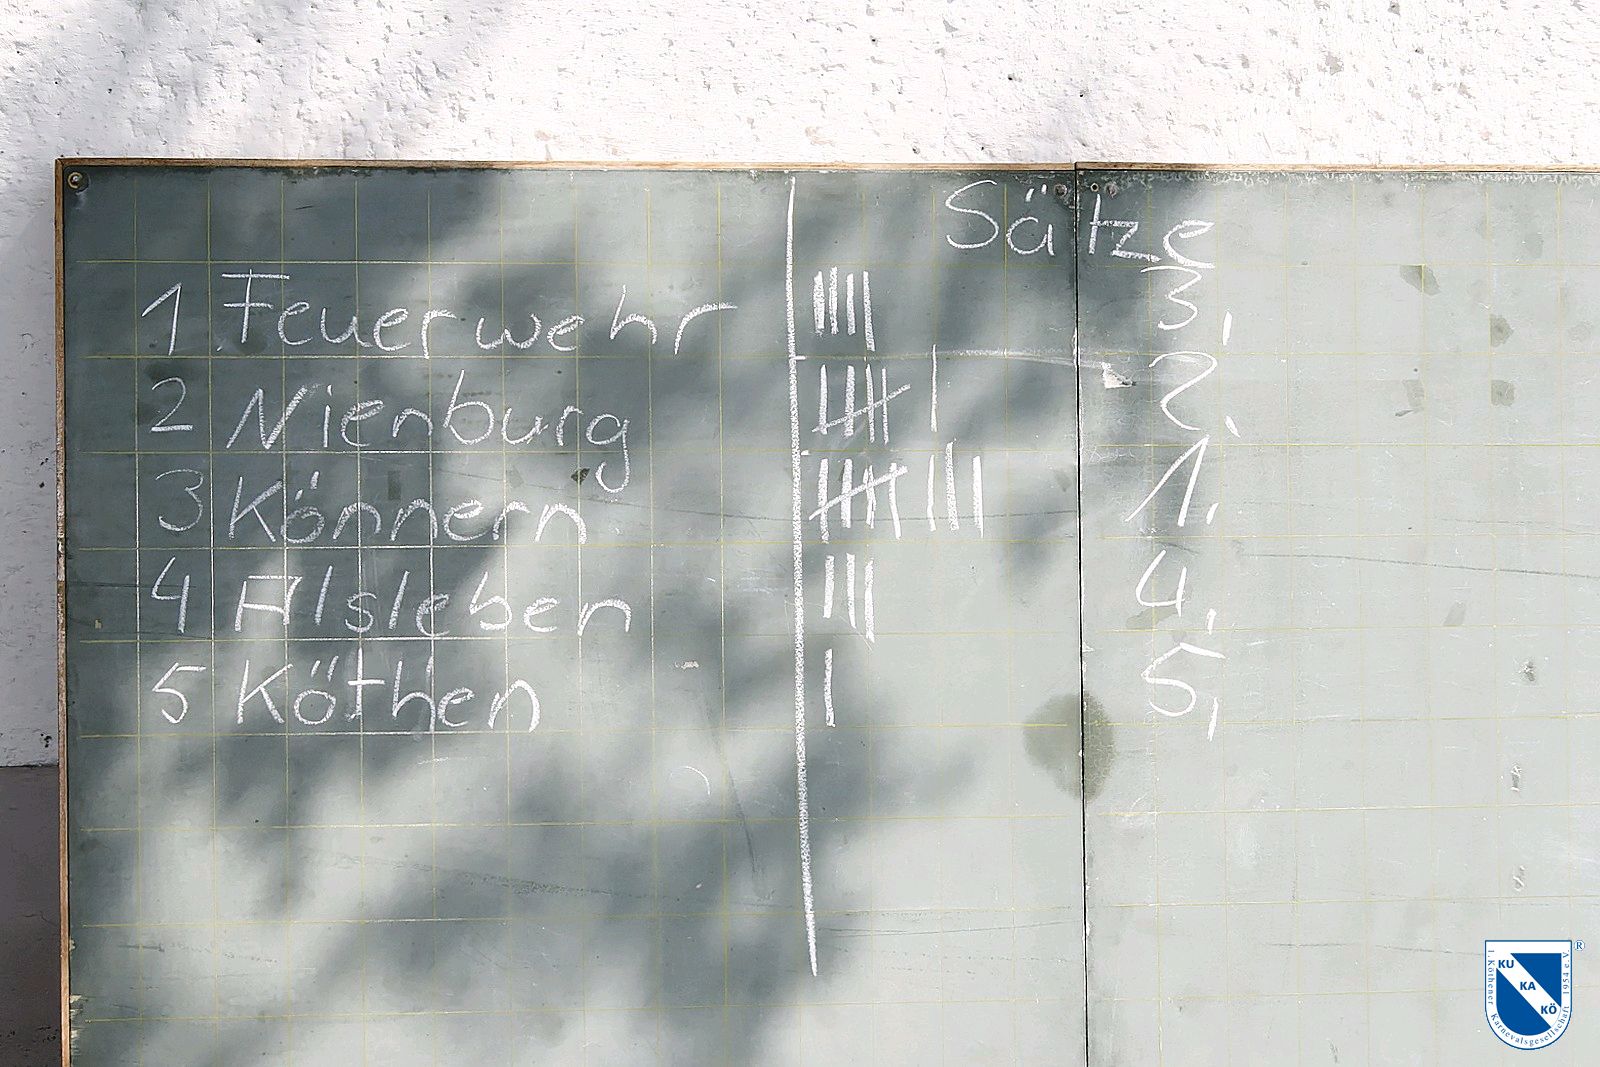 Sätze
1 Feuerwehr |||| 3,
2 Nienburg 卌 | 2,
3 Könnern 卌 ||| 1,
4 Alsleben ||| 4,
5 Köthen | 5,
KU
KA
KÖ
1. Köthener Karnevalsgesellschaft 1954 e.V.
®